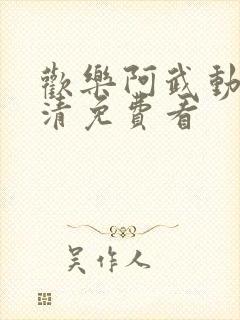 歡樂阿武動
清免費看
吴作人